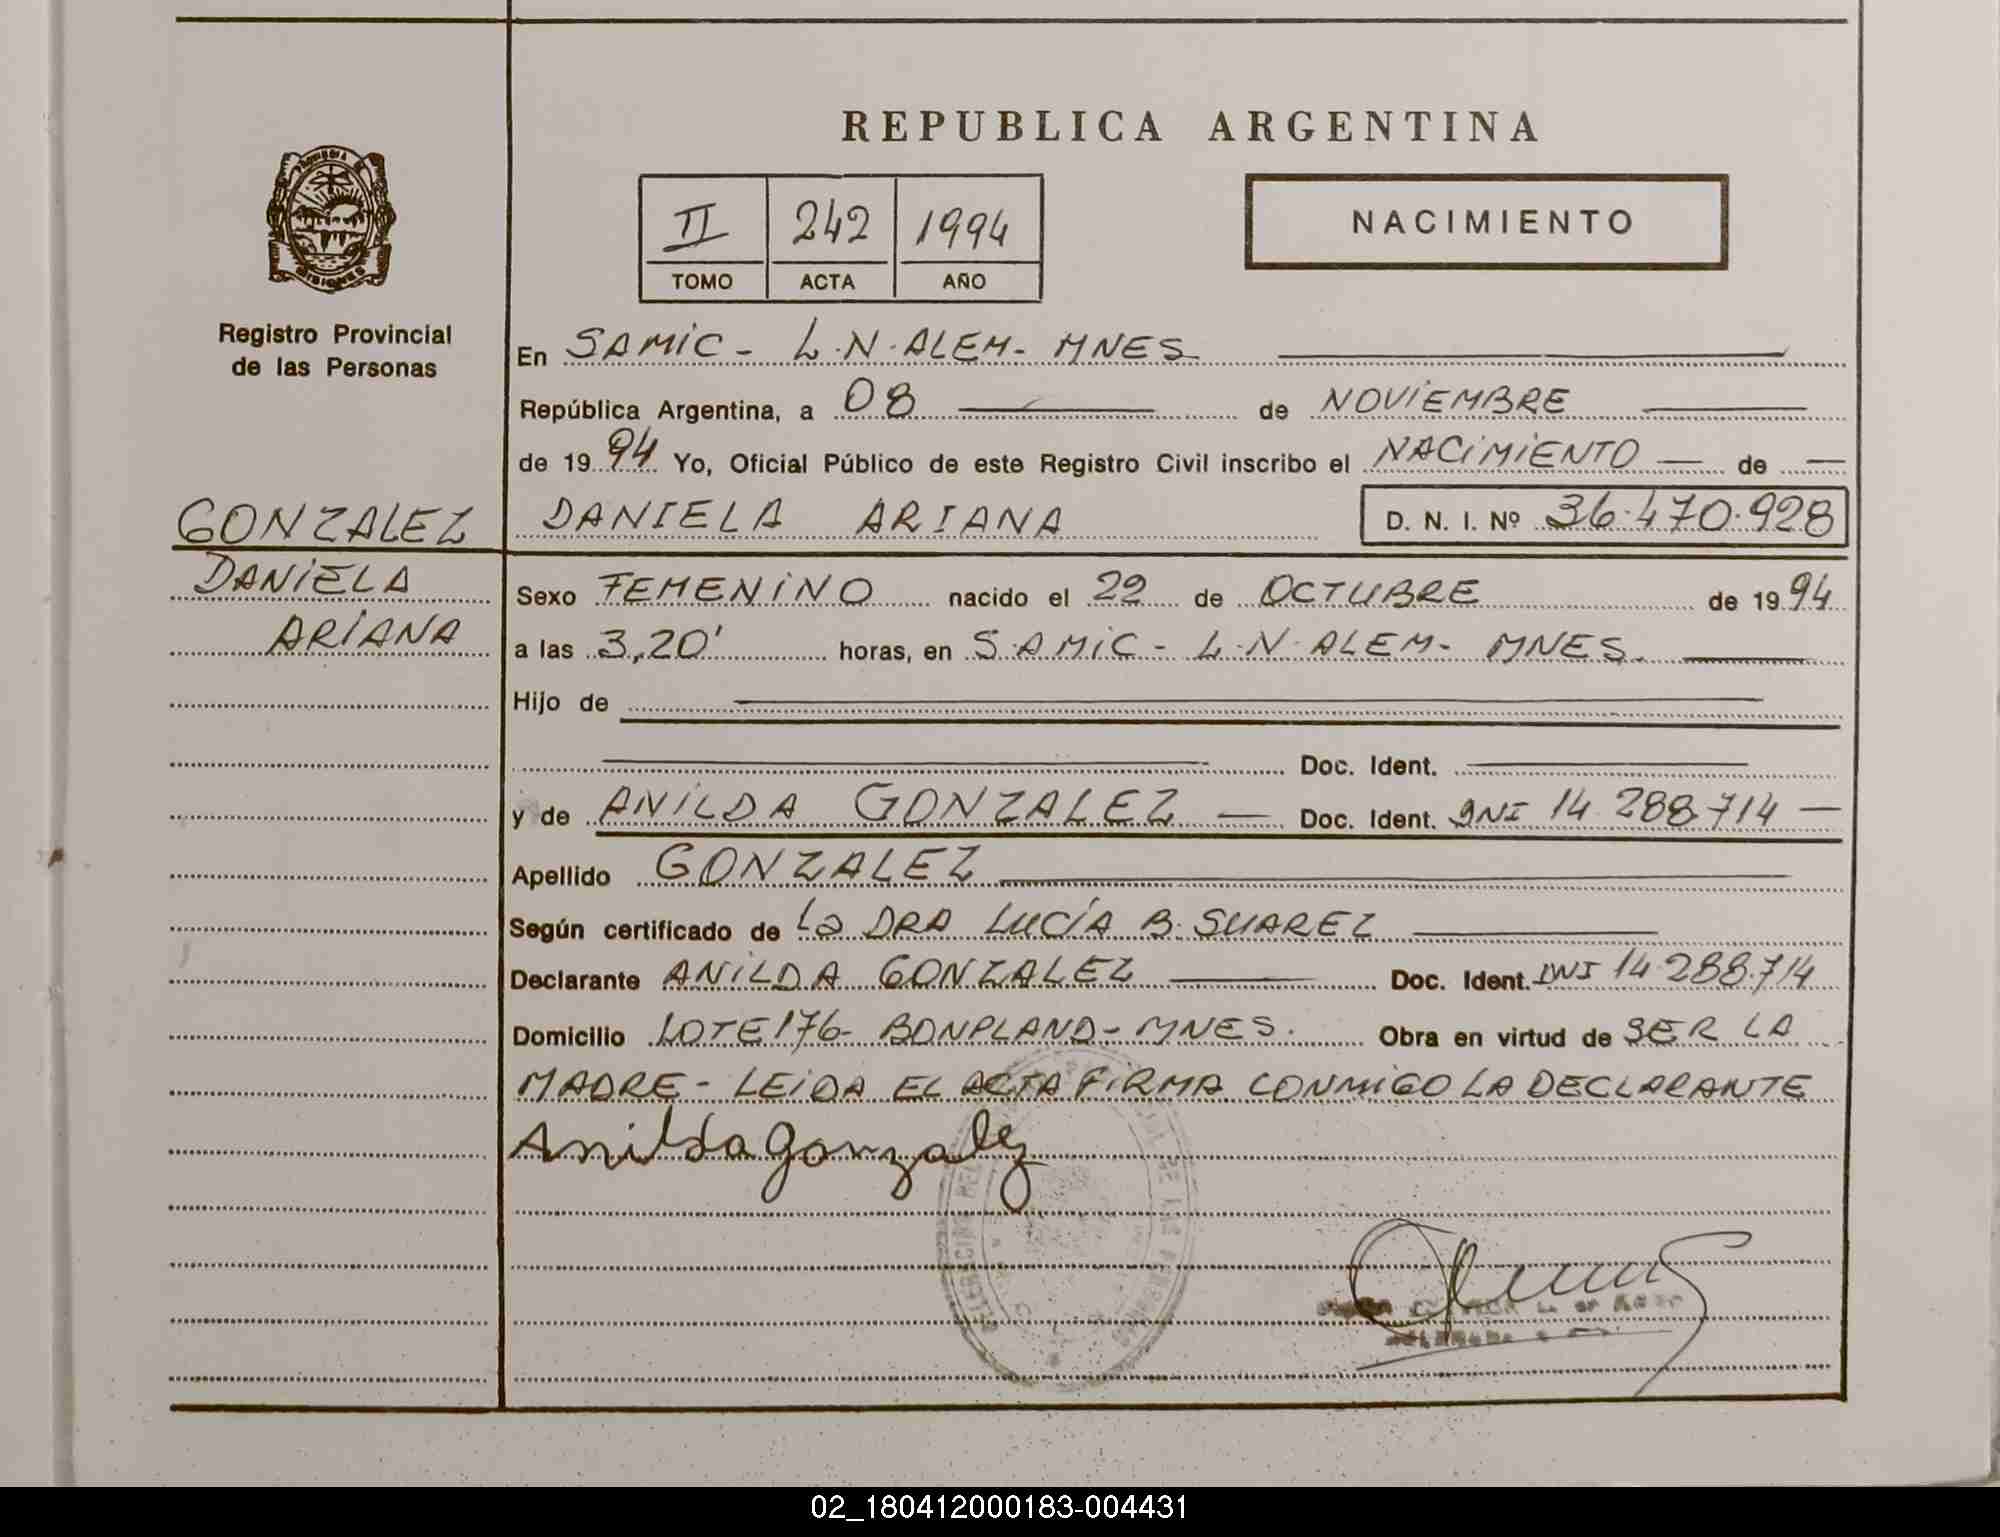 REPUBLICA ARGENTINA
II 242 1994
TOMO ACTA AÑO
NACIMIENTO
PROVINCIA DE
MISIONES
Registro Provincial
de las Personas
GONZALEZ
DANIELA
ARIANA
En SAMIC - L.N. ALEM - MNES
República Argentina, a 08 de NOVIEMBRE
de 1994 Yo, Oficial Público de este Registro Civil inscribo el NACIMIENTO de
DANIELA ARIANA D. N. I. Nº 36.470.928
Sexo FEMENINO nacido el 22 de OCTUBRE de 1994
a las 3,20' horas, en SAMIC - L.N. ALEM - MNES.
Hijo de
Doc. Ident.
y de ANILDA GONZALEZ Doc. Ident. DNI 14.288.714
Apellido GONZALEZ
Según certificado de La DRA LUCÍA B. SUAREZ
Declarante ANILDA GONZALEZ Doc. Ident. DNI 14.288.714
Domicilio LOTE 176 - BONPLAND - MNES. Obra en virtud de SER LA
MADRE - LEIDA EL ACTA FIRMA CONMIGO LA DECLARANTE
Anilda Gonzalez
02_180412000183-004431